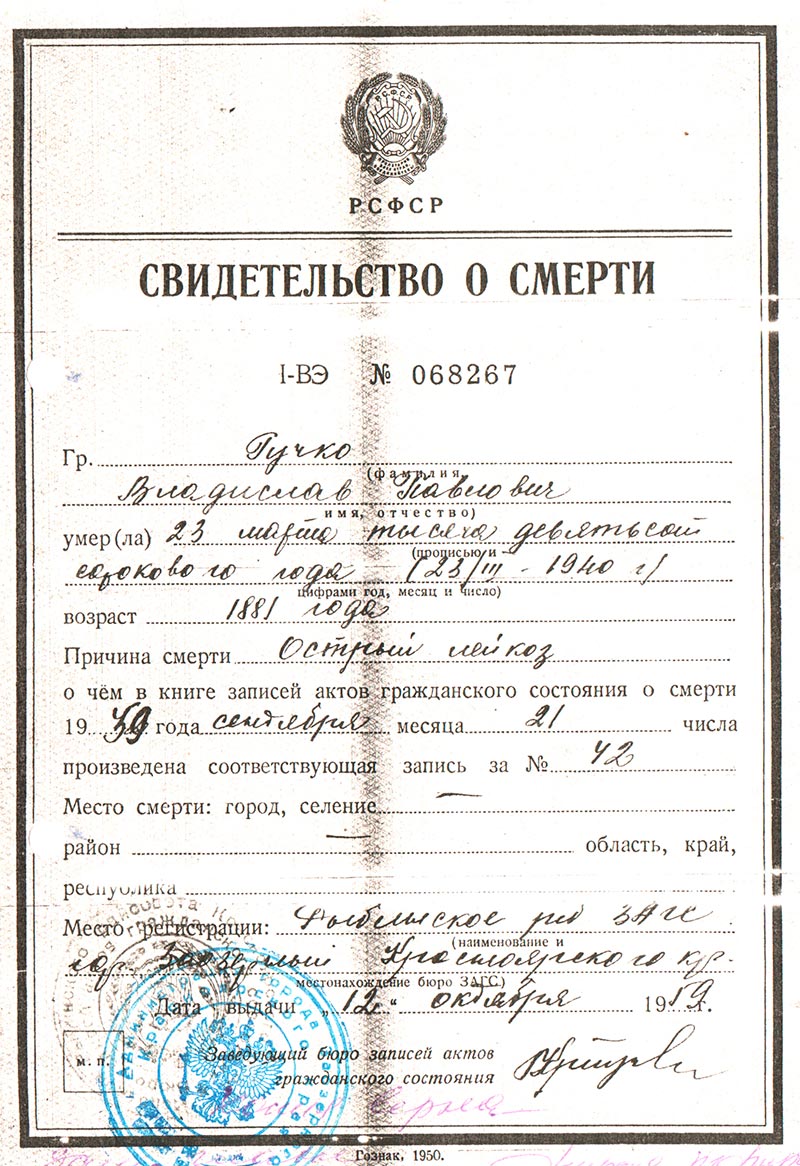 РСФСР
СВИДЕТЕЛЬСТВО О СМЕРТИ
I-ВЭ № 068267
Гр. Гучко
(фамилия,
Владислав Павлович
имя, отчество)
умер(ла) 23 марта тысяча девятьсот
(прописью и
сорокового года (23/III - 1940 г)
цифрами год, месяц и число)
возраст 1881 года
Причина смерти Острый лейкоз
о чём в книге записей актов гражданского состояния о смерти
1959 года сентября месяца 21 числа
произведена соответствующая запись за № 42
Место смерти: город, селение —
район — область, край,
республика
Место регистрации: Рыбинское рб ЗАГС
(наименование и
гор. Заозерный Красноярского кр.
местонахождение бюро ЗАГС)
Дата выдачи „12“ октября 1959 г.
м. п.
Заведующий бюро записей актов
гражданского состояния
Гознак, 1950.